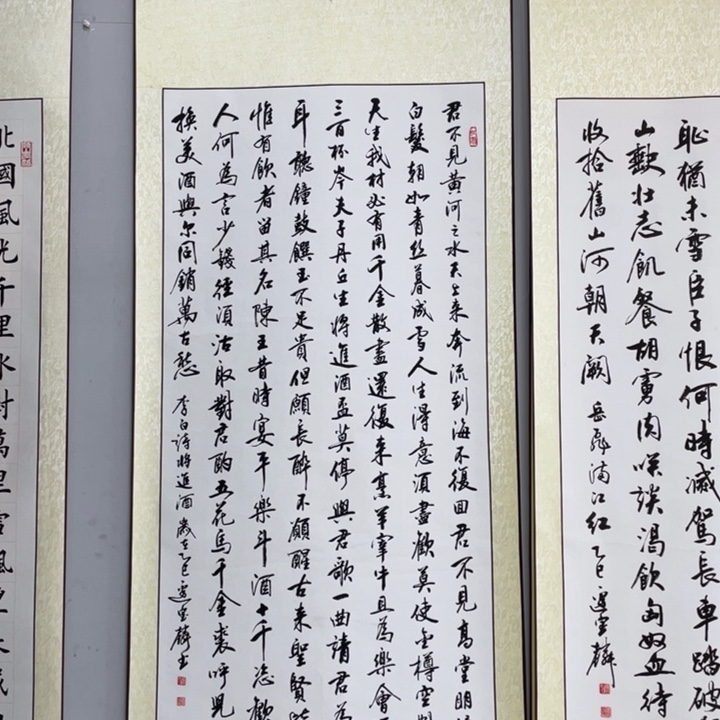 耻猶未雪臣子恨何時滅駕長車踏破
山壮志飢餐胡虜肉咲談渴飲匈奴血待
收拾舊山河朝天闕 岳飛滿江紅 乙巳 麟
君不見黄河之水天上来奔流到海不復回君不見高堂明
白髮朝如青丝暮成雪人生得意須盡歡莫使金樽空
天生我材必有用千金散盡還復来烹羊宰牛且為樂會
三百杯岑夫子丹丘生将進酒盃莫停與君歌一曲請君為
耳聽鐘鼓饌玉不足貴但願長醉不願醒古来聖賢
惟有飲者留其名陳王昔時宴平樂斗酒十千恣歡
人何為言少錢径須沽取對君酌五花馬千金裘呼児
換美酒與尔同銷萬古愁 李白詩将進酒 歲乙巳 麟书
北國風光千里冰封萬里雪